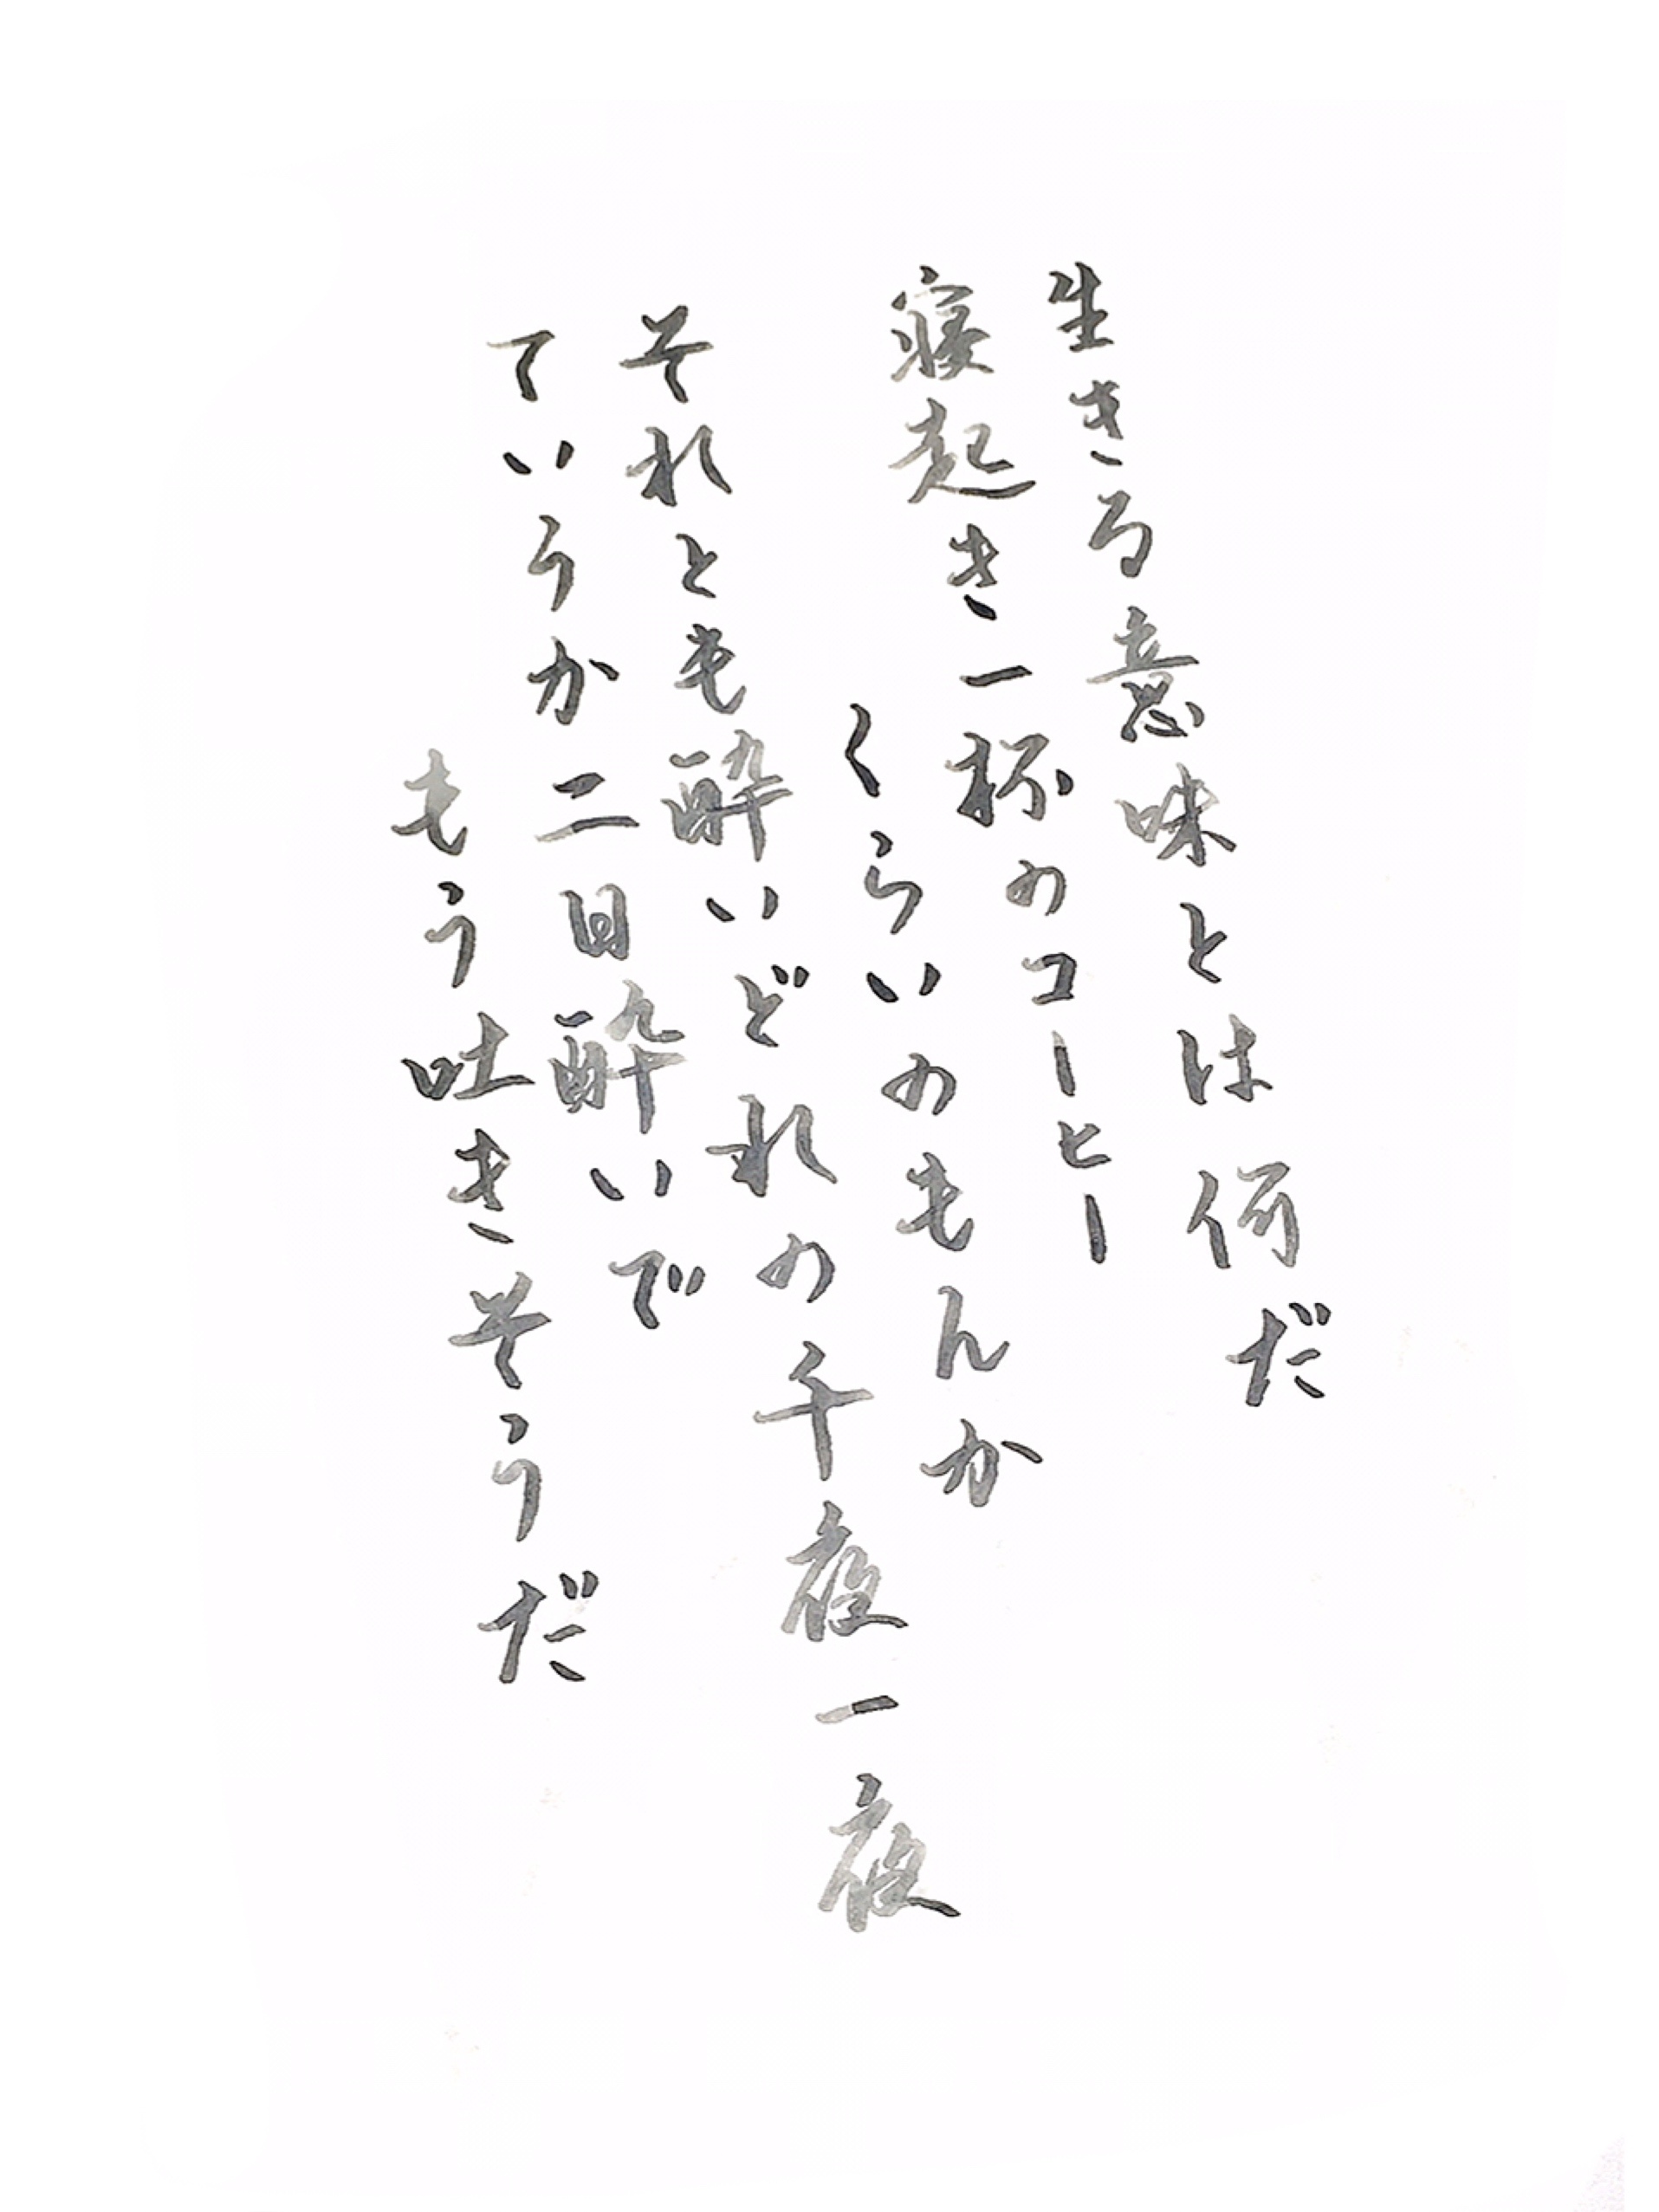 生きる意味とは何だ
寝起き一杯のコーヒー
くらいのもんか
それとも酔いどれの千夜一夜
ていうか二日酔いで
もう吐きそうだ